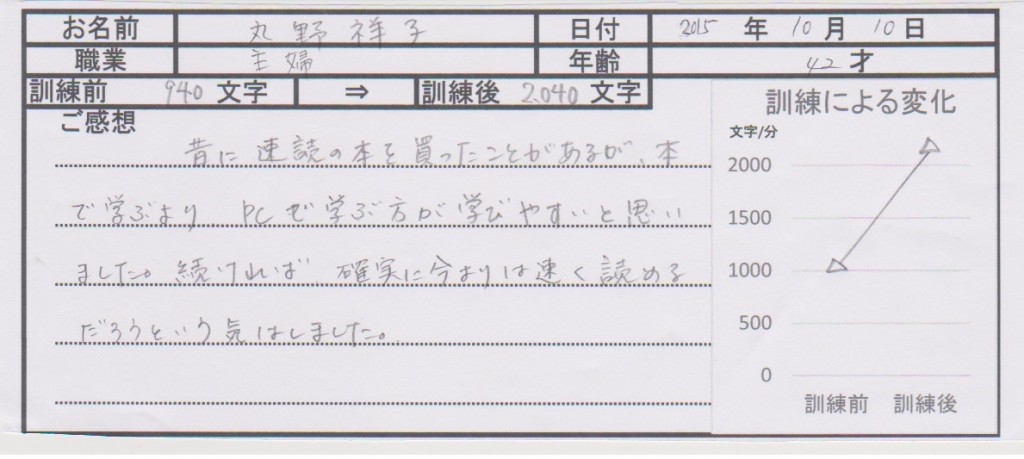 お名前 丸野祥子 日付 2015年10月10日
職業 主婦 年齢 42才
訓練前 940文字 ⇒ 訓練後 2,040文字
ご感想
昔に速読の本を買ったことがあるが、本
で学ぶより PCで学ぶ方が学びやすいと思い
ました。続ければ、確実に今よりは速く読める
だろうという気はしました。
訓練による変化
文字/分
2000
1500
1000
500
0
訓練前 訓練後